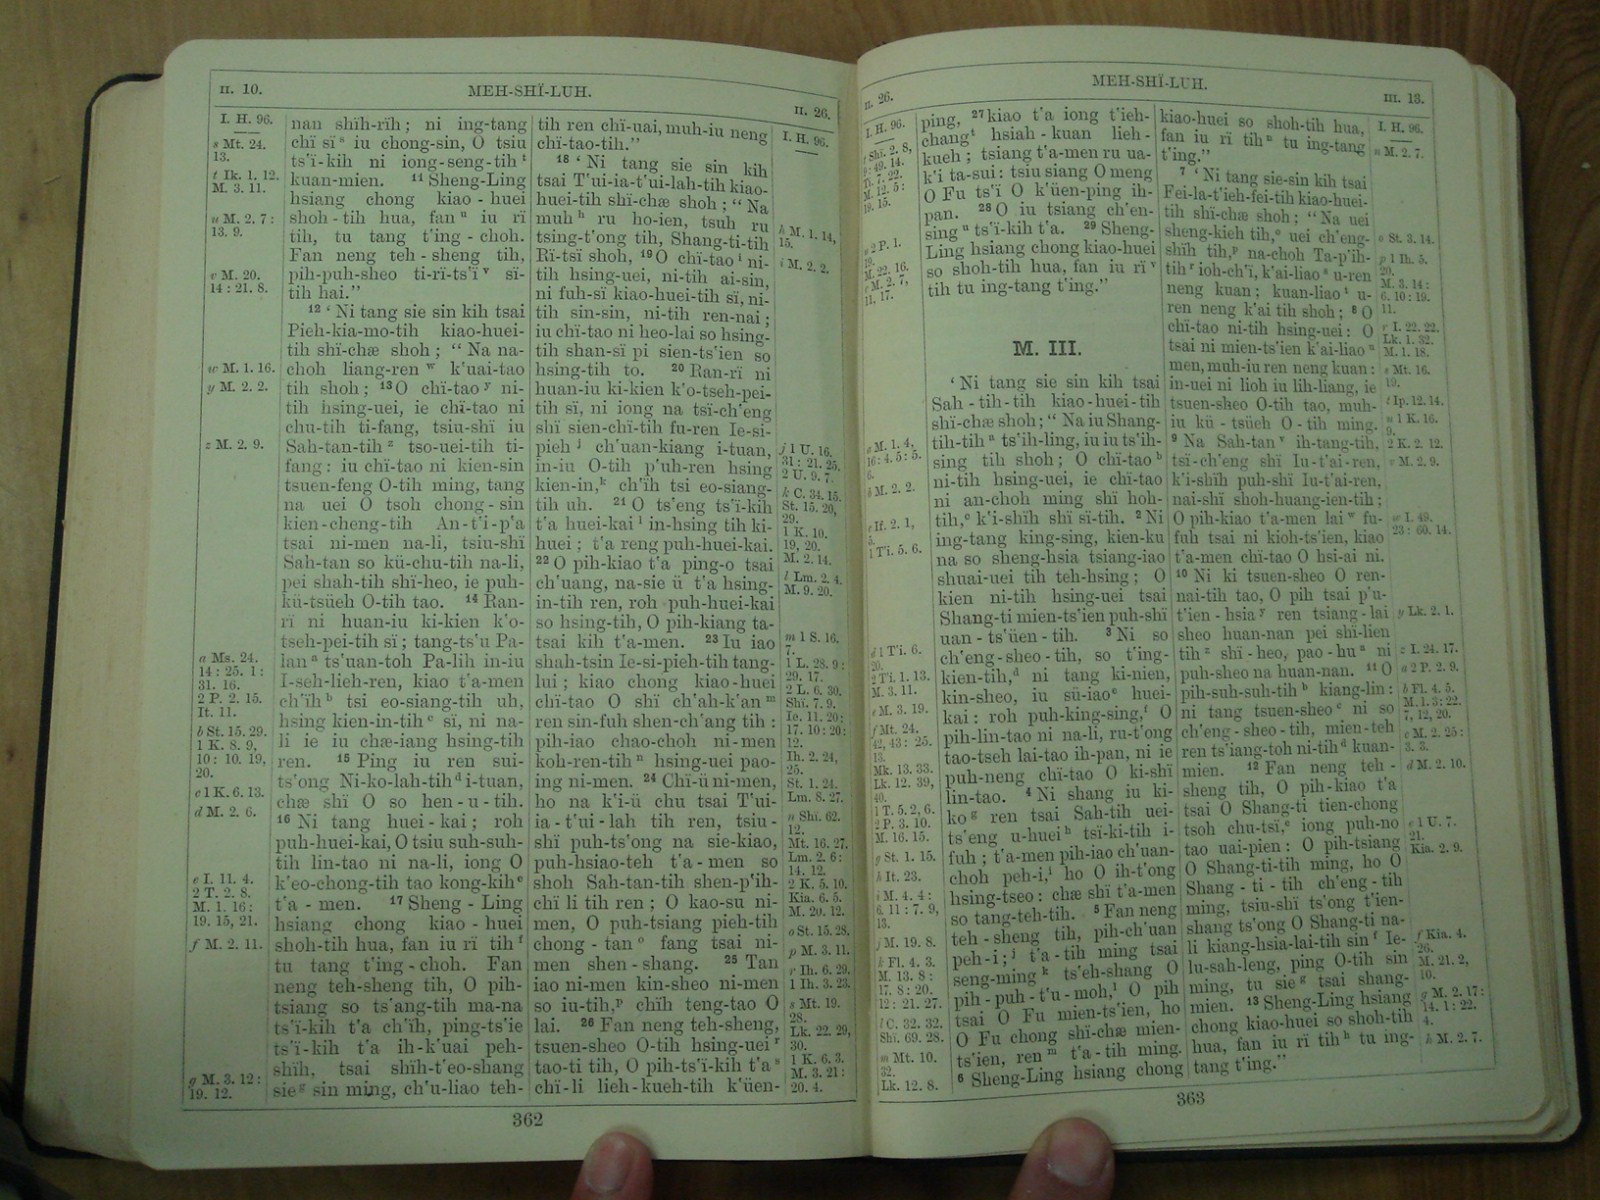 II. 10.
MEH-SHÏ-LUH.
II. 26.
I. H. 96.
s Mt. 24.
13.
t Ik. 1. 12.
M. 3. 11.
u M. 2. 7:
13. 9.
v M. 20.
14: 21. 8.
w M. 1. 16.
y M. 2. 2.
z M. 2. 9.
a Ms. 24.
14: 25. 1:
31. 16.
2 P. 2. 15.
It. 11.
b St. 15. 29.
1 K. 8. 9,
10: 10. 19,
20.
c 1 K. 6. 13.
d M. 2. 6.
e I. 11. 4.
2 T. 2. 8.
M. 1. 16:
19. 15, 21.
f M. 2. 11.
g M. 3. 12:
19. 12.
nan shïh-rïh; ni ing-tang
chï sï s iu chong-sin, O tsiu
ts'ï-kih ni iong-seng-tih t
kuan-mien. 11 Sheng-Ling
hsiang chong kiao-huei
shoh-tih hua, fan u iu rï
tih, tu tang t'ing-choh.
Fan neng teh-sheng tih,
pih-puh-sheo ti-rï-ts'ï v sï-
tih hai."
12 ' Ni tang sie sin kih tsai
Pieh-kia-mo-tih kiao-huei-
tih shï-chæ shoh; " Na na-
choh liang-ren w k'uai-tao
tih shoh; 13 O chï-tao y ni-
tih hsing-uei, ie chï-tao ni
chu-tih ti-fang, tsiu-shï iu
Sah-tan-tih z tso-uei-tih ti-
fang: iu chï-tao ni kien-sin
tsuen-feng O-tih ming, tang
na uei O tsoh chong-sin
kien-cheng-tih An-t'i-p'a
tsai ni-men na-li, tsiu-shï
Sah-tan so kü-chu-tih na-li,
pei shah-tih shï-heo, ie puh-
kü-tsüeh O-tih tao. 14 Ran-
rï ni huan-iu ki-kien k'o-
tseh-pei-tih sï; tang-ts'u Pa-
lan a ts'uan-toh Pa-lih in-iu
I-seh-lieh-ren, kiao t'a-men
ch'ïh b tsi eo-siang-tih uh,
hsing kien-in-tih c sï, ni na-
li ie iu chæ-iang hsing-tih
ren. 15 Ping iu ren sui-
ts'ong Ni-ko-lah-tih d i-tuan,
chæ shï O so hen-u-tih.
16 Ni tang huei-kai; roh
puh-huei-kai, O tsiu suh-suh-
tih lin-tao ni na-li, iong O
k'eo-chong-tih tao kong-kih e
t'a-men. 17 Sheng-Ling
hsiang chong kiao-huei
shoh-tih hua, fan iu rï tih f
tu tang t'ing-choh. Fan
neng teh-sheng tih, O pih-
tsiang so ts'ang-tih ma-na
ts'ï-kih t'a ch'ïh, ping-ts'ie
ts'ï-kih t'a ih-k'uai peh-
shïh, tsai shïh-t'eo-shang
sie g sin ming, ch'u-liao teh-
tih ren chï-uai, muh-iu neng
chï-tao-tih."
18 ' Ni tang sie sin kih
tsai T'ui-ia-t'ui-lah-tih kiao-
huei-tih shï-chæ shoh; " Na
muh h ru ho-ien, tsuh ru
tsing-t'ong tih, Shang-ti-tih
Rï-tsï shoh, 19 O chï-tao i ni-
tih hsing-uei, ni-tih ai-sin,
ni fuh-sï kiao-huei-tih sï, ni-
tih sin-sin, ni-tih ren-nai;
iu chï-tao ni heo-lai so hsing-
tih shan-sï pi sien-ts'ien so
hsing-tih to. 20 Ran-rï ni
huan-iu ki-kien k'o-tseh-pei-
tih sï, ni iong na tsï-ch'eng
shï sien-chï-tih fu-ren Ie-si-
pieh j ch'uan-kiang i-tuan,
in-iu O-tih p'uh-ren hsing
kien-in, k ch'ïh tsi eo-siang-
tih uh. 21 O ts'eng ts'ï-kih
t'a huei-kai l in-hsing tih ki-
huei; t'a reng puh-huei-kai.
22 O pih-kiao t'a ping-o tsai
ch'uang, na-sie ü t'a hsing-
in-tih ren, roh puh-huei-kai
so hsing-tih, O pih-kiang ta-
tsai kih t'a-men. 23 Iu iao
shah-tsin Ie-si-pieh-tih tang-
lui; kiao chong kiao-huei
chï-tao O shï ch'ah-k'an m
ren sin-fuh shen-ch'ang tih:
pih-iao chao-choh ni-men
koh-ren-tih n hsing-uei pao-
ing ni-men. 24 Chï-ü ni-men,
ho na k'i-ü chu tsai T'ui-
ia-t'ui-lah tih ren, tsiu-
shï puh-ts'ong na sie-kiao,
puh-hsiao-teh t'a-men so
shoh Sah-tan-tih shen-p'ih-
chï li tih ren; O kao-su ni-
men, O puh-tsiang pieh-tih
chong-tan o fang tsai ni-
men shen-shang. 25 Tan
iao ni-men kin-sheo ni-men
so iu-tih, p chïh teng-tao O
lai. 26 Fan neng teh-sheng,
tsuen-sheo O-tih hsing-uei r
tao-ti tih, O pih-ts'ï-kih t'a s
chï-li lieh-kueh-tih k'üen-
I. H. 96.
h M. 1. 14,
15.
i M. 2. 2.
j 1 U. 16.
31: 21. 25.
2 U. 9. 7.
k C. 34. 15.
St. 15. 20,
29.
1 K. 10.
19, 20.
M. 2. 14.
l Lm. 2. 4.
M. 9. 20.
m 1 S. 16.
7.
1 L. 28. 9:
29. 17.
2 L. 6. 30.
Shï. 7. 9.
Ie. 11. 20:
17. 10: 20:
12.
Ih. 2. 24,
25.
St. 1. 24.
Lm. 8. 27.
n Shï. 62.
12.
Mt. 16. 27.
Lm. 2. 6:
14. 12.
2 K. 5. 10.
Kia. 6. 5.
M. 20. 12.
o St. 15. 28.
p M. 3. 11.
r Ih. 6. 29.
1 Ih. 3. 23.
s Mt. 19.
28.
Lk. 22. 29,
30.
1 K. 6. 3.
M. 3. 21:
20. 4.
362
II. 26.
MEH-SHÏ-LUH.
III. 13.
I. H. 96.
t Shï. 2. 8,
9: 49. 14.
Ti. 7. 22.
M. 12. 5:
19. 15.
u 2 P. 1.
19.
M. 22. 16.
v M. 2. 7,
11. 17.
a M. 1. 4,
16: 4. 5: 5.
6.
b M. 2. 2.
c If. 2. 1,
5.
1 Ti. 5. 6.
d 1 T'i. 6.
20.
2 Ti. 1. 13.
M. 3. 11.
e M. 3. 19.
f Mt. 24.
42, 43: 25.
13.
Mk. 13. 33.
Lk. 12. 39,
40.
1 T. 5. 2, 6.
2 P. 3. 10.
M. 16. 15.
g St. 1. 15.
h It. 23.
i M. 4. 4:
6. 11: 7. 9,
13.
j M. 19. 8.
k Fl. 4. 3.
M. 13. 8:
17. 8: 20.
12: 21. 27.
l C. 32. 32.
Shï. 69. 28.
m Mt. 10.
32.
Lk. 12. 8.
ping, 27 kiao t'a iong t'ieh-
chang t hsiah-kuan lieh-
kueh; tsiang t'a-men ru ua-
k'i ta-sui: tsiu siang O meng
O Fu ts'ï O k'üen-ping ih-
pan. 28 O iu tsiang ch'en-
sing u ts'ï-kih t'a. 29 Sheng-
Ling hsiang chong kiao-huei
so shoh-tih hua, fan iu rï v
tih tu ing-tang t'ing."
M. III.
' Ni tang sie sin kih tsai
Sah-tih-tih kiao-huei-tih
shï-chæ shoh; " Na iu Shang-
tih-tih a ts'ih-ling, iu iu ts'ih-
sing tih shoh; O chï-tao b
ni-tih hsing-uei, ie chï-tao
ni an-choh ming shï hoh-
tih, c k'i-shïh shï sï-tih. 2 Ni
ing-tang king-sing, kien-ku
na so sheng-hsia tsiang-iao
shuai-uei tih teh-hsing; O
kien ni-tih hsing-uei tsai
Shang-ti mien-ts'ien puh-shï
uan-ts'üen-tih. 3 Ni so
ch'eng-sheo-tih, so t'ing-
kien-tih, d ni tang ki-nien,
kin-sheo, iu sü-iao e huei-
kai: roh puh-king-sing, f O
pih-lin-tao ni na-li, ru-t'ong
tao-tseh lai-tao ih-pan, ni ie
puh-neng chï-tao O ki-shï
lin-tao. 4 Ni shang iu ki-
ko g ren tsai Sah-tih uei-
ts'eng u-huei h tsï-ki-tih i-
fuh; t'a-men pih-iao ch'uan-
choh peh-i, i ho O ih-t'ong
hsing-tseo: chæ shï t'a-men
so tang-teh-tih. 5 Fan neng
teh-sheng tih, pih-ch'uan
peh-i; j t'a-tih ming tsai
seng-ming k ts'eh-shang O
pih-puh-t'u-moh, l O pih
tsai O Fu mien-ts'ien, ho
O Fu chong shï-chæ mien-
ts'ien, ren m t'a-tih ming.
6 Sheng-Ling hsiang chong
kiao-huei so shoh-tih hua,
fan iu rï tih n tu ing-tang
t'ing."
7 ' Ni tang sie-sin kih tsai
Fei-la-t'ieh-fei-tih kiao-huei-
tih shï-chæ shoh; " Na uei
sheng-kieh tih, o uei ch'eng-
shïh tih, p na-choh Ta-p'ih-
tih r ioh-ch'ï, k'ai-liao s u-ren
neng kuan; kuan-liao t u-
ren neng k'ai tih shoh; 8 O
chï-tao ni-tih hsing-uei: O
tsai ni mien-ts'ien k'ai-liao u
men, muh-iu ren neng kuan:
in-uei ni lioh iu lih-liang, ie
tsuen-sheo O-tih tao, muh-
iu kü-tsüeh O-tih ming.
9 Na Sah-tan v ih-tang-tih,
tsï-ch'eng shï Iu-t'ai-ren,
k'i-shïh puh-shï Iu-t'ai-ren,
nai-shï shoh-huang-ien-tih;
O pih-kiao t'a-men lai w fu-
fuh tsai ni kioh-ts'ien, kiao
t'a-men chï-tao O hsi-ai ni.
10 Ni ki tsuen-sheo O ren-
nai-tih tao, O pih tsai p'u-
t'ien-hsia y ren tsiang-lai
sheo huan-nan pei shï-lien
tih z shï-heo, pao-hu a ni
puh-sheo na huan-nan. 11 O
pih-suh-suh-tih b kiang-lin:
ni tang tsuen-sheo c ni so
ch'eng-sheo-tih, mien-teh
ren ts'iang-toh ni-tih d kuan-
mien. 12 Fan neng teh-
sheng tih, O pih-kiao t'a
tsai O Shang-ti tien-chong
tsoh chu-tsï, e iong puh-no
tao uai-pien: O pih-tsiang
O Shang-ti-tih ming, ho O
Shang-ti-tih ch'eng-tih
ming, tsiu-shï ts'ong t'ien-
shang ts'ong O Shang-ti na-
li kiang-hsia-lai-tih sin f Ie-
lu-sah-leng, ping O-tih sin
ming, tu sie g tsai shang-
mien. 13 Sheng-Ling hsiang
chong kiao-huei so shoh-tih
hua, fan iu rï tih h tu ing-
tang t'ing."
I. H. 96.
n M. 2. 7.
o St. 3. 14.
p 1 Ih. 5.
20.
M. 3. 14:
6. 10: 19.
11.
r I. 22. 22.
Lk. 1. 32.
M. 1. 18.
s Mt. 16.
19.
t Ip. 12. 14.
u 1 K. 16.
9.
2 K. 2. 12.
v M. 2. 9.
w I. 49.
23: 60. 14.
y Lk. 2. 1.
z I. 24. 17.
a 2 P. 2. 9.
b Fl. 4. 5.
M. 1. 3: 22.
7, 12, 20.
c M. 2. 25:
3. 3.
d M. 2. 10.
e 1 U. 7.
21.
Kia. 2. 9.
f Kia. 4.
26.
M. 21. 2,
10.
g M. 2. 17:
14. 1: 22.
4.
h M. 2. 7.
363